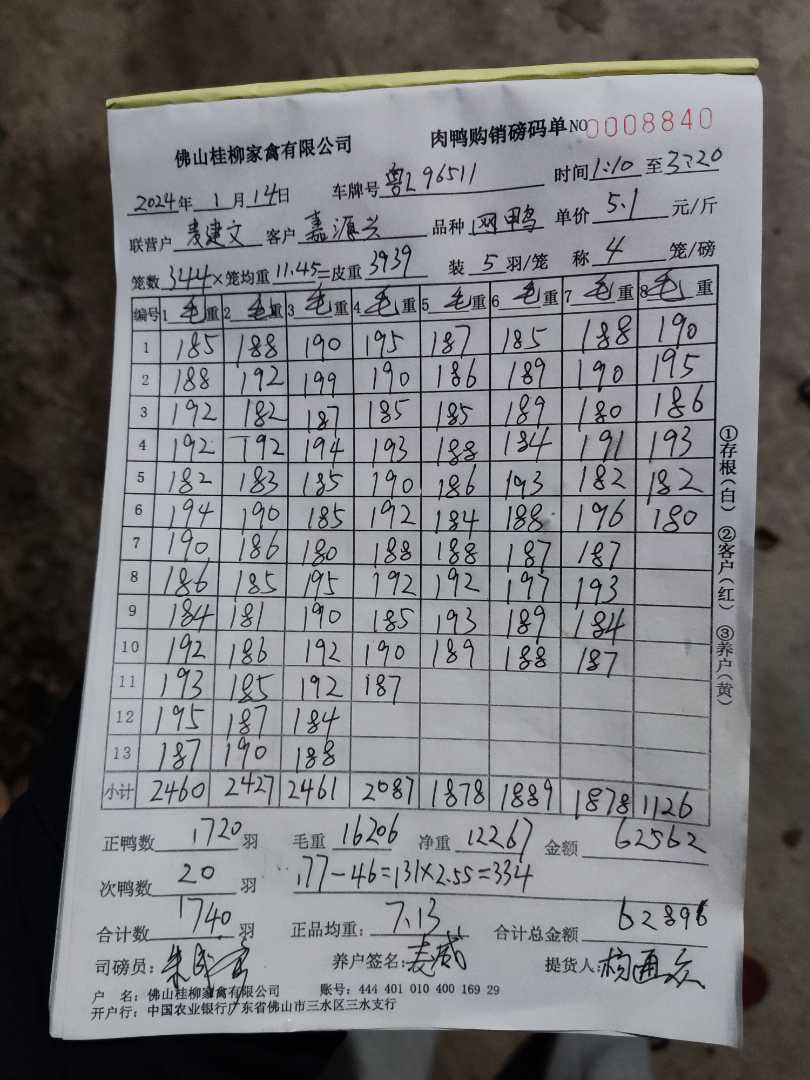 佛山桂柳家禽有限公司 肉鸭购销磅码单 NO 0008840
2024年 1月14日 车牌号 粤L96511 时间1:10 至3:20
联营户 麦建文 客户 嘉源兴 品种 网鸭 单价 5.1 元/斤
笼数344×笼均重11.45=皮重3939 装 5 羽/笼 称 4 笼/磅
编号 1毛重 2毛重 3毛重 4毛重 5毛重 6毛重 7毛重 8毛重
1 185 188 190 195 187 185 188 190
2 188 192 199 190 186 189 190 195
3 192 182 187 185 185 189 180 186
4 192 192 194 193 188 184 191 193
5 182 183 185 190 186 193 182 182
6 194 190 185 192 184 188 196 180
7 190 186 180 188 188 187 187
8 186 185 195 192 192 197 193
9 184 181 190 185 193 189 184
10 192 186 192 190 189 188 187
11 193 185 192 187
12 195 187 184
13 187 190 188
小计 2460 2427 2461 2087 1878 1889 1878 1126
正鸭数 1720 羽 毛重 16206 净重 12267 金额 62562
次鸭数 20 羽 177-46=131×2.55=334
合计数 1740 羽 正品均重: 7.13 合计总金额 62896
司磅员: 养户签名: 麦威 提货人:
户 名: 佛山桂柳家禽有限公司 账号: 444 401 010 400 169 29
开户行: 中国农业银行广东省佛山市三水区三水支行
①存根(白) ②客户(红) ③养户(黄)